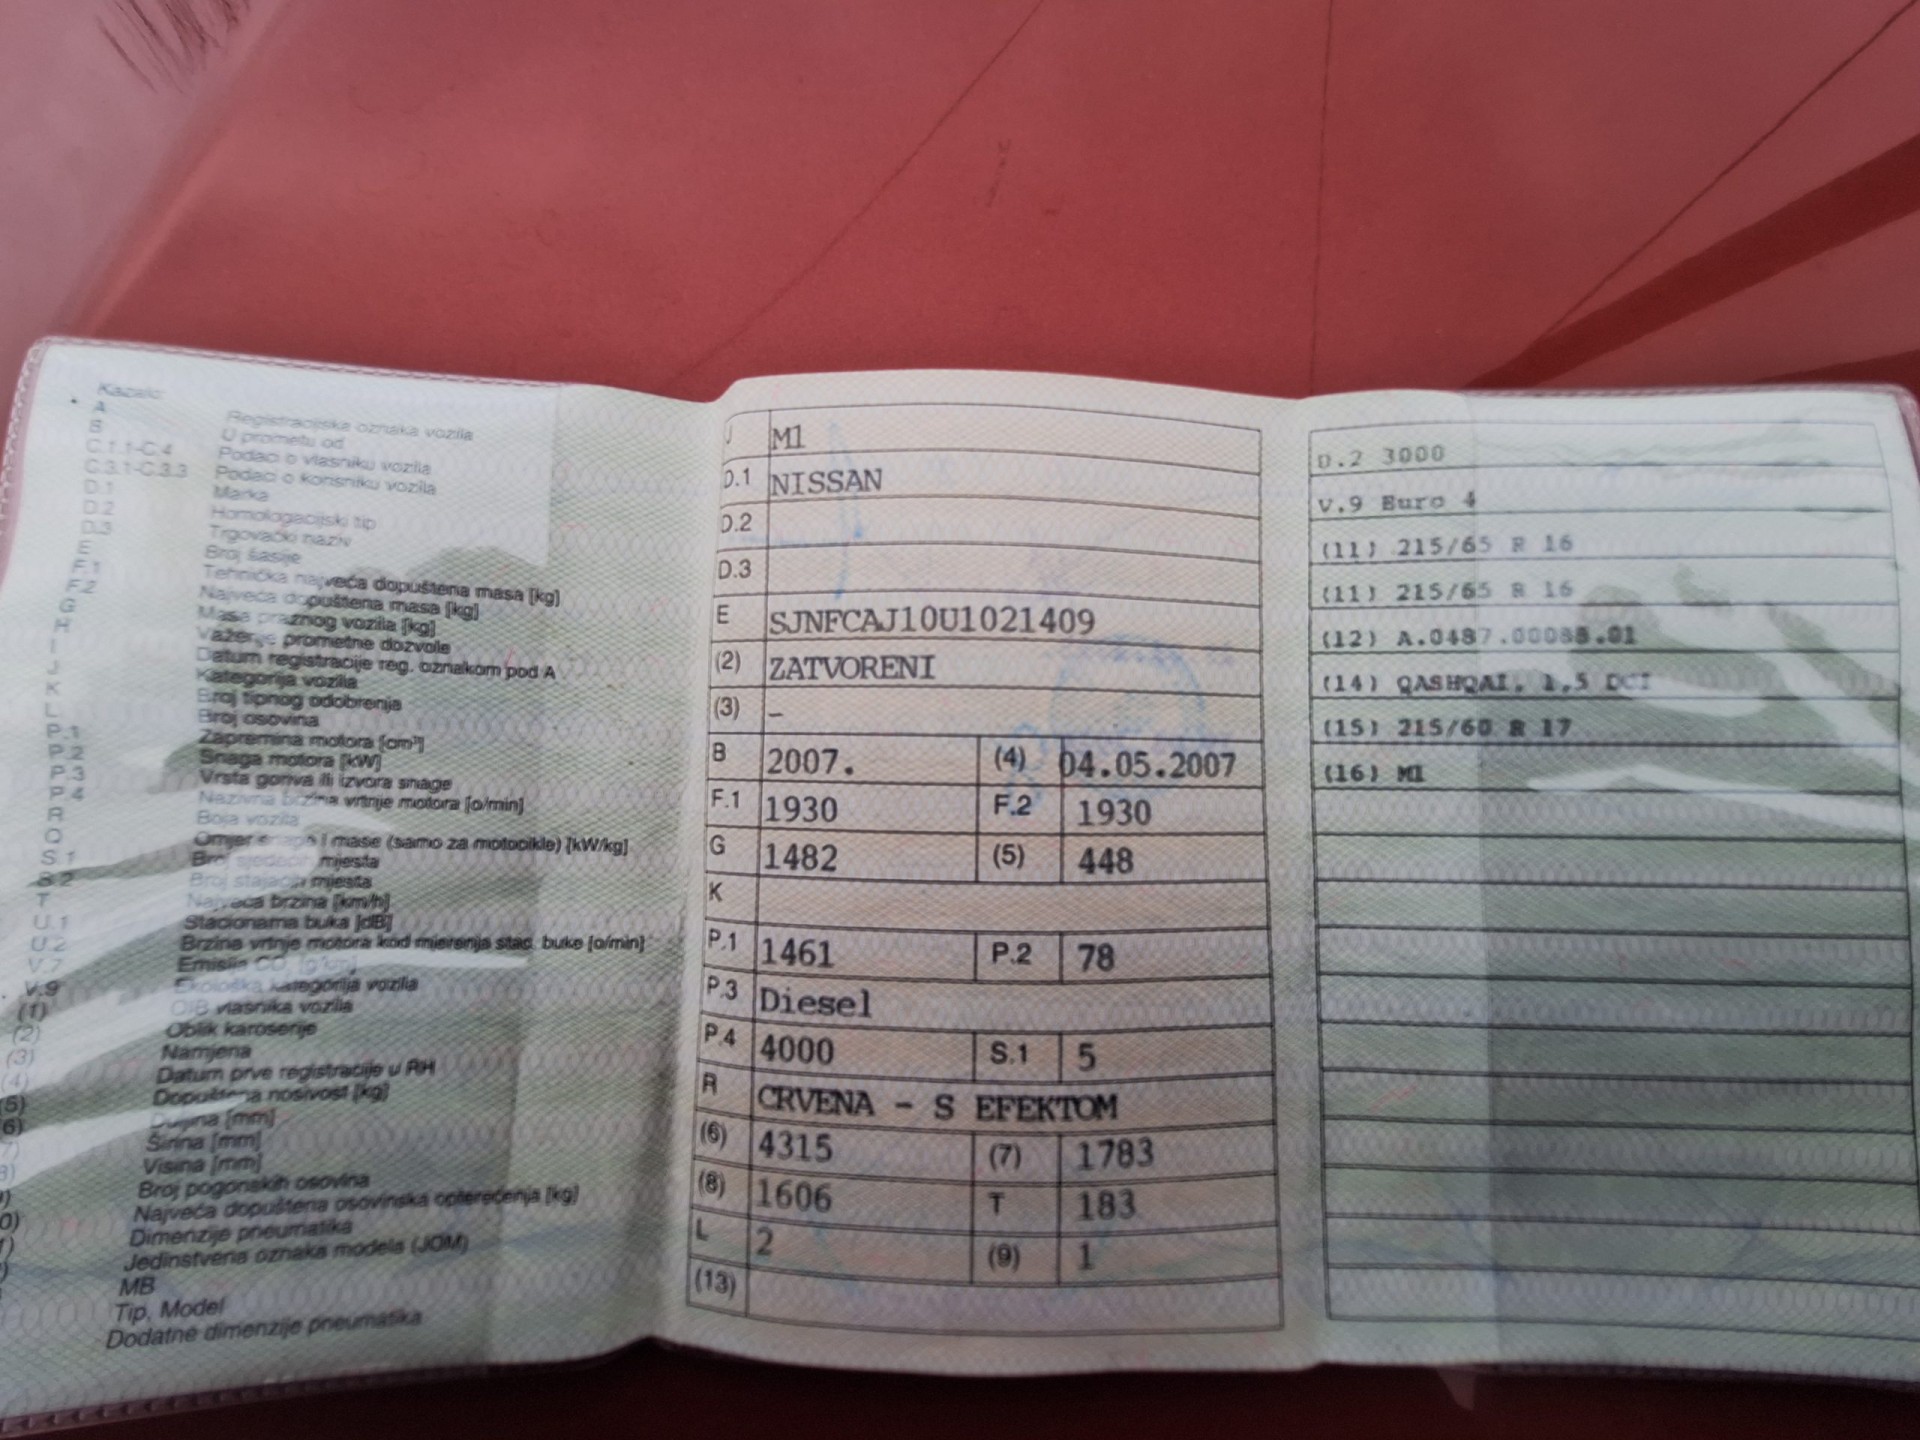 Kazalo:
A Registracijska oznaka vozila
B U prometu od
C.1.1-C.4 Podaci o vlasniku vozila
C.3.1-C.3.3 Podaci o korisniku vozila
D.1 Marka
D.2 Homologacijski tip
D.3 Trgovački naziv
E Broj šasije
F.1 Tehnička najveća dopuštena masa [kg]
F.2 Najveća dopuštena masa [kg]
G Masa praznog vozila [kg]
H Važenje prometne dozvole
I Datum registracije reg. oznakom pod A
J Kategorija vozila
K Broj tipnog odobrenja
L Broj osovina
P.1 Zapremina motora [cm³]
P.2 Snaga motora [kW]
P.3 Vrsta goriva ili izvora snage
P.4 Nazivna brzina vrtnje motora [o/min]
R Boja vozila
Q Omjer snage i mase (samo za motocikle) [kW/kg]
S.1 Broj sjedećih mjesta
S.2 Broj stajaćih mjesta
T Najveća brzina [km/h]
U.1 Stacionarna buka [dB]
U.2 Brzina vrtnje motora kod mjerenja stac. buke [o/min]
V.7 Emisija CO₂ [g/km]
V.9 Ekološka kategorija vozila
(1) OIB vlasnika vozila
(2) Oblik karoserije
(3) Namjena
(4) Datum prve registracije u RH
(5) Dopuštena nosivost [kg]
6) Duljina [mm]
) Širina [mm]
8) Visina [mm]
) Broj pogonskih osovina
0) Najveća dopuštena osovinska opterećenja [kg]
) Dimenzije pneumatika
) Jedinstvena oznaka modela (JOM)
MB
Tip, Model
Dodatne dimenzije pneumatika
J M1
D.1 NISSAN
D.2
D.3
E SJNFCAJ10U1021409
(2) ZATVORENI
(3) –
B 2007. (4) 04.05.2007
F.1 1930 F.2 1930
G 1482 (5) 448
K
P.1 1461 P.2 78
P.3 Diesel
P.4 4000 S.1 5
R CRVENA - S EFEKTOM
(6) 4315 (7) 1783
(8) 1606 T 183
L 2 (9) 1
(13)
D.2 3000
V.9 Euro 4
(11) 215/65 R 16
(11) 215/65 R 16
(12) A.0487.00088.01
(14) QASHQAI, 1,5 DCI
(15) 215/60 R 17
(16) M1